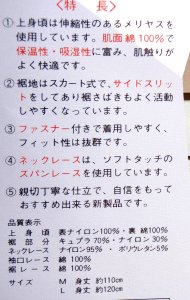 〈特長〉
①上身頃は伸縮性のあるメリヤスを
使用しています。肌面綿100%で
保温性・吸湿性に富み、肌触りが
よく快適です。
②裾地はスカート式で、サイドスリッ
トをしてあり裾さばきもよく活動
しやすくなっています。
③ファスナー付きで着用しやすく、
フィット性は抜群です。
④ネックレースは、ソフトタッチの
スパンレースを使用しています。
⑤親切丁寧な仕立で、自信をもって
おすすめ出来る新製品です。
品質表示
上身頃 表ナイロン100%・裏綿100%
裾部分 キュプラ70%・ナイロン30%
ネックレース ナイロン95%・ポリウレタン5%
袖口レース 綿100%
裾レース 綿100%
サイズ M 身丈 約110cm
L 身丈 約120cm